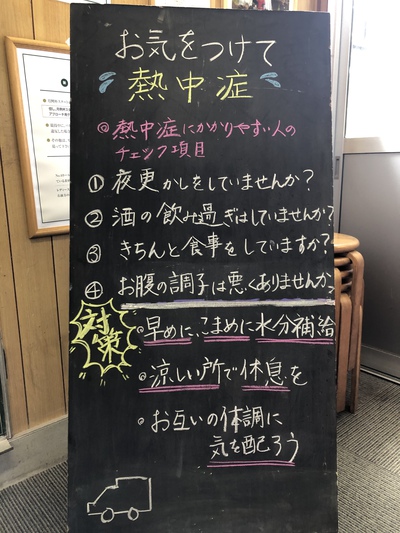 お気をつけて
熱中症
◎熱中症にかかりやすい人の
チェック項目
① 夜更かしをしていませんか?
② 酒の飲み過ぎはしていませんか?
③ きちんと食事をしていますか?
④ お腹の調子は悪くありませんか
対策
◎早めに、こまめに水分補給
◎涼しい所で休息を
・お互いの体調に
気を配ろう